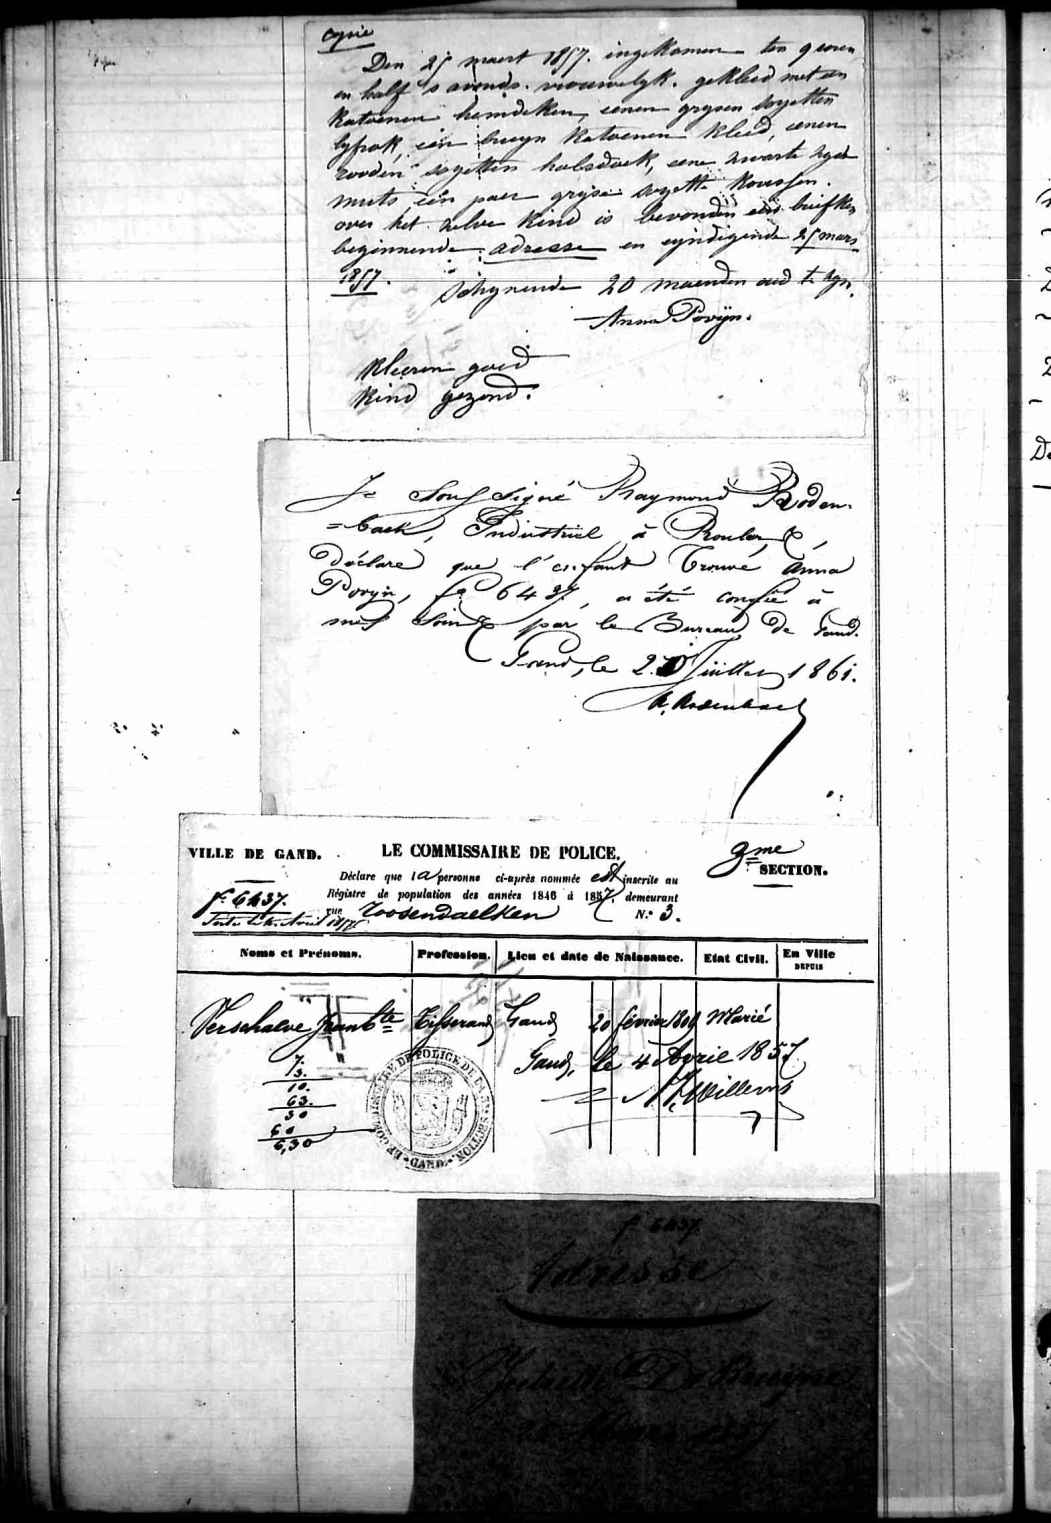 Copie
Den 25 maert 1857. ingekomen ten 9 uren
en half s'avonds. vrouwelyk. gekleed met een
katoenen hemdeken, eenen grysen sayetten
lyfrok, een bruyn katoenen kleed, eenen
rooden sayetten halsdoek, eene zwarte zyde
muts een paer gryse sayette koussen.
over het zelve kind is bevonden een briefken
beginnende adresse en eyndigende 25 mars
1857. Schynende 20 maenden oud te zyn.
Anna Povyn.
kleeren goed
kind gezond.
Je Soussigné Raymond Roden-
=back, Industriel à Roulers,
déclare que l'enfant Trouvé Anna
Povyn, fo 6437, a été confié à
mes soins par le Bureau de Gand.
Gand, le 20 Juillet 1861.
R. Rodenbach
VILLE DE GAND.
LE COMMISSAIRE DE POLICE,
3me SECTION.
Déclare que la personne ci-après nommée est inscrite au
Régistre de population des années 1846 à 1857, demeurant
rue Roosendaelken N.° 3.
fo 6437.
Noms et Prénoms. Profession. Lieu et date de Naissance. Etat Civil. En Ville DEPUIS
Verschaeve Jean Bte Tisserand Gand 20 février 1809 Marié
Gand, le 4 Avril 1857.
Willems
7.
3.
10.
63.
30
60
6,30
GAND
f 6437
Adresse
De Bruyne